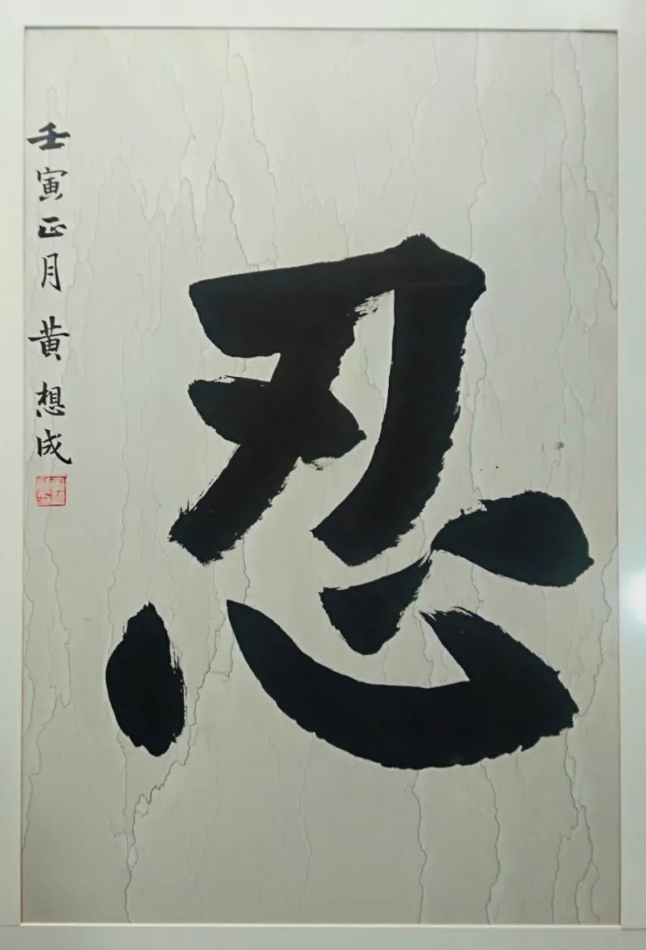 忍
壬寅正月 黄想成